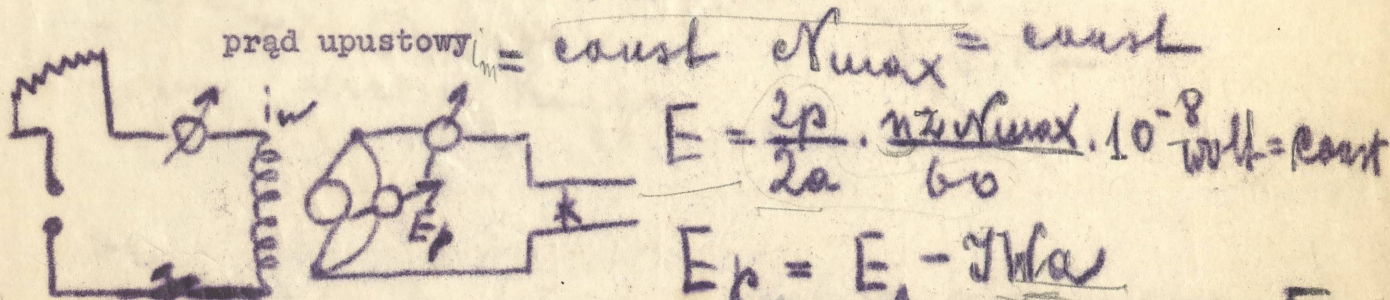 prąd upustowy i_m = const N max = const
i_w
E = 2p/2a · nzNmax/60 · 10^-8 wolt = const
E_p
E_p = E - JWa